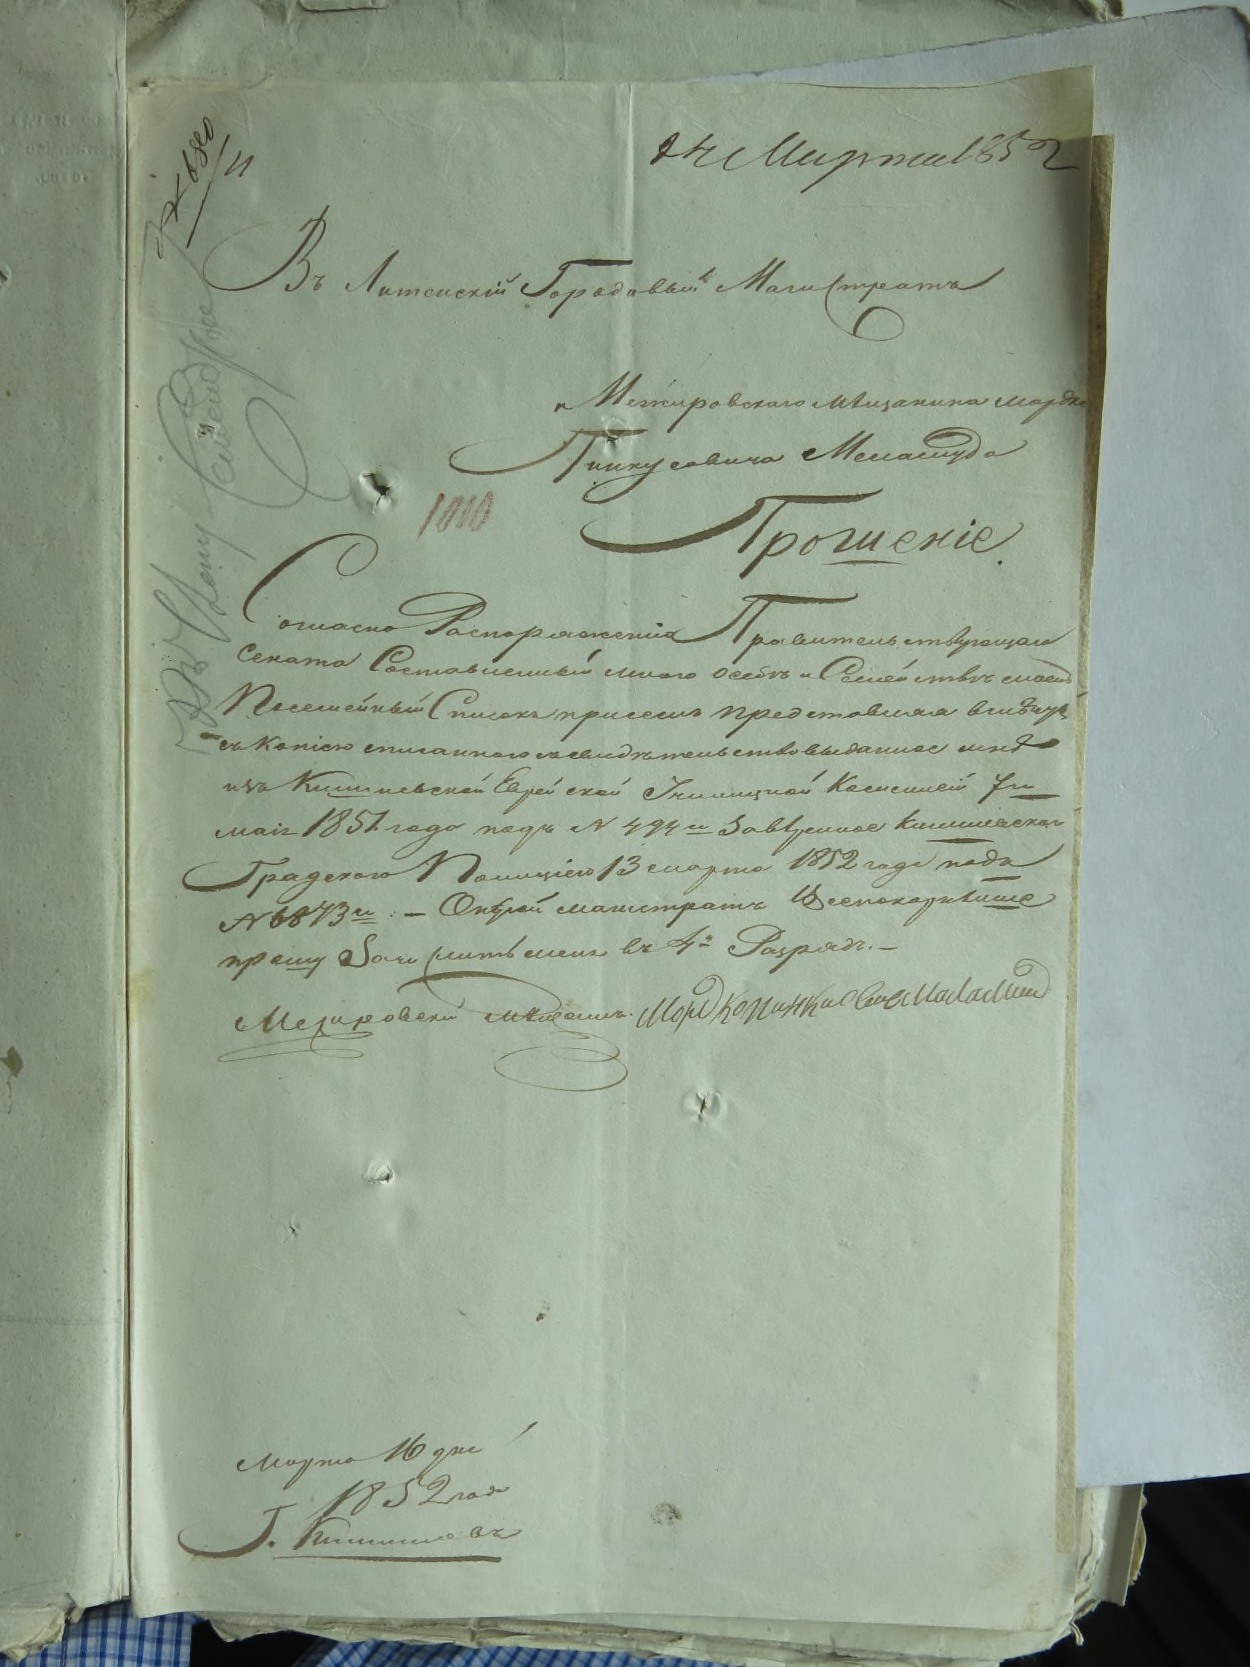 24 Марта 1852
№ 680
11
Въ Литинскій Городовый Магистратъ
Межировскаго мѣщанина Мордка
Пинкусовича Меламуда
1010
Прошеніе
Согласно Распоряженія Правительствующаго
Сената Составленный мною о себѣ и Семействѣ моемъ
Посемейный Списокъ присемъ представляя
съ Копіею списанною съ свидѣтельства выданное мнѣ
изъ Кишиневской Еврейской Комисіей 7го
маія 1851 года подъ № 494м Завѣренное Кишиневскою
Градскою Полиціею 13 марта 1852 года подъ
№ 6873м: — Оный магистратъ Всепокорнѣйше
прошу Зачислить меня въ 4й Разрядъ. —
Межировскій мѣщанинъ. Мордко Пинкисовичъ Маламуд
Марта 16 дня
1852 года
Г. Кишиневъ